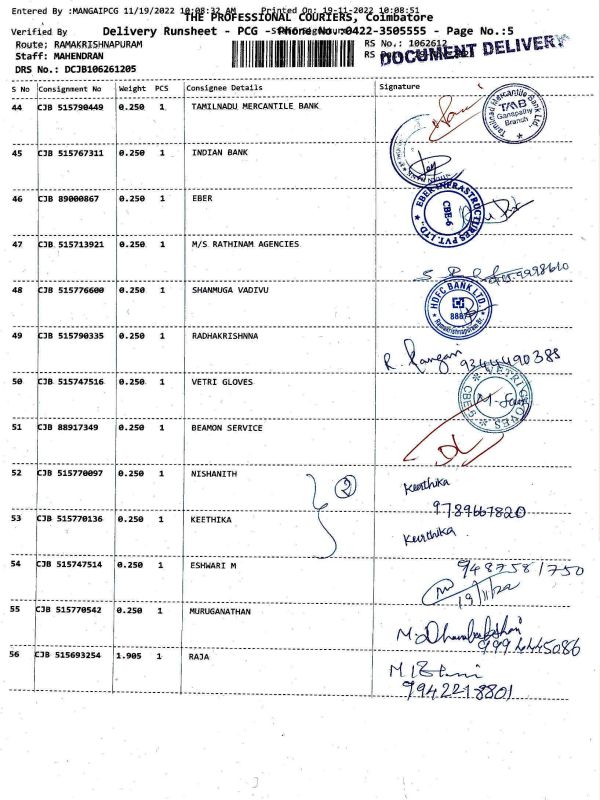 Entered By :MANGAIPCG 11/19/2022 10:08:32 AM Printed On: 19-11-2022 10:08:51
THE PROFESSIONAL COURIERS, Coimbatore
Verified By Delivery Runsheet - PCG - Phone No.:0422-3505555 - Page No.:5
Route: RAMAKRISHNAPURAM RS No.: 1062612
Staff: MAHENDRAN RS
DOCUMENT DELIVERY
DRS No.: DCJB106261205
S No Consignment No Weight PCS Consignee Details Signature
44 CJB 515790449 0.250 1 TAMILNADU MERCANTILE BANK
Tamilnad Mercantile Bank Ltd. TMB Ganapathy Branch
45 CJB 515767311 0.250 1 INDIAN BANK
46 CJB 89000867 0.250 1 EBER
EBER INFRASTRUCTURES PVT. LTD. CBE-6
47 CJB 515713921 0.250 1 M/S RATHINAM AGENCIES
48 CJB 515776600 0.250 1 SHANMUGA VADIVU
HDFC BANK LTD.
49 CJB 515790335 0.250 1 RADHAKRISHNNA
R. Rangan 9344490388
50 CJB 515747516 0.250 1 VETRI GLOVES
VETRI GLOVES CBE-5
51 CJB 88917349 0.250 1 BEAMON SERVICE
52 CJB 515770097 0.250 1 NISHANITH
2 Keerthika
9789667820
53 CJB 515770136 0.250 1 KEETHIKA
Keerthika
54 CJB 515747514 0.250 1 ESHWARI M
9487581750
19/11/22
55 CJB 515770542 0.250 1 MURUGANATHAN
9994445086
56 CJB 515693254 1.905 1 RAJA
9942218801